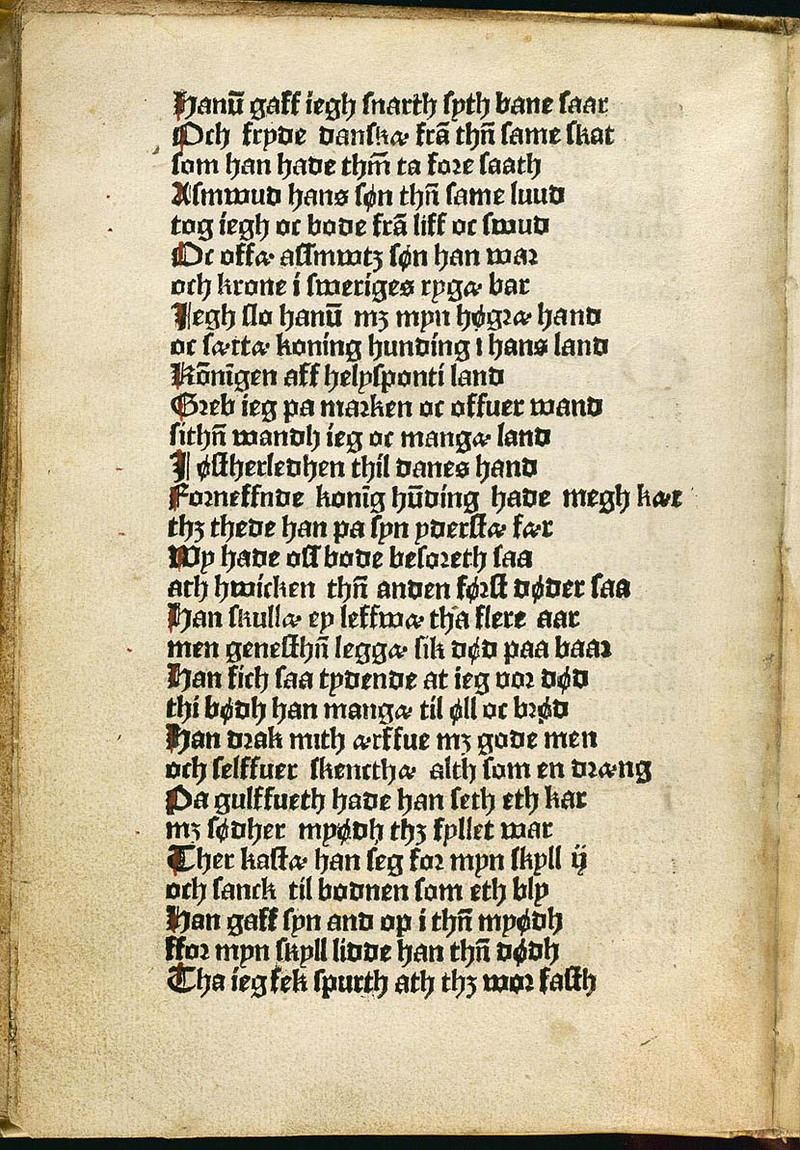 Hanū gaff iegh snarth syth bane saar
Och fryde danskæ frā thn̄ same skat
som han hade thm̄ ta fore saath
Asmwud hans søn thn̄ same luud
tog iegh oc bode frā liff oc swud
Oc offæ assmwtz søn han war
och krone i sweriges rygæ bar
Jegh slo hanū mz myn høgræ hand
oc sættæ koning hunding i hans land
Kōnīgen aff helysponti land
Greb ieg pa marken oc offuer wand
sithn̄ wandh ieg oc mangæ land
J østherledhen thil danes hand
Forneffnde konīg hūding hade megh kær
thz thede han pa syn yderstæ fær
Wy hade oss bode besoreth saa
ath hwicken thn̄ anden først døder faa
Han skullæ ey leffwæ tha flere aar
men genesthn̄ leggæ sik død paa baar
Han fich saa tydende at ieg vor død
thi bødh han mangæ til øll oc brød
Han drak mith ærffue mz gode men
och selffuer skencthæ alth som en dræng
Pa gulffueth hade han seth eth kar
mz sødher myødh thz fyllet war
Ther kastæ han seg for myn skyll ij
och sanck til bodnen som eth bly
Han gaff syn and op i thn̄ myødh
ffor myn skyll lidde han thn̄ dødh
Tha ieg fek spurth ath thz wor fasth